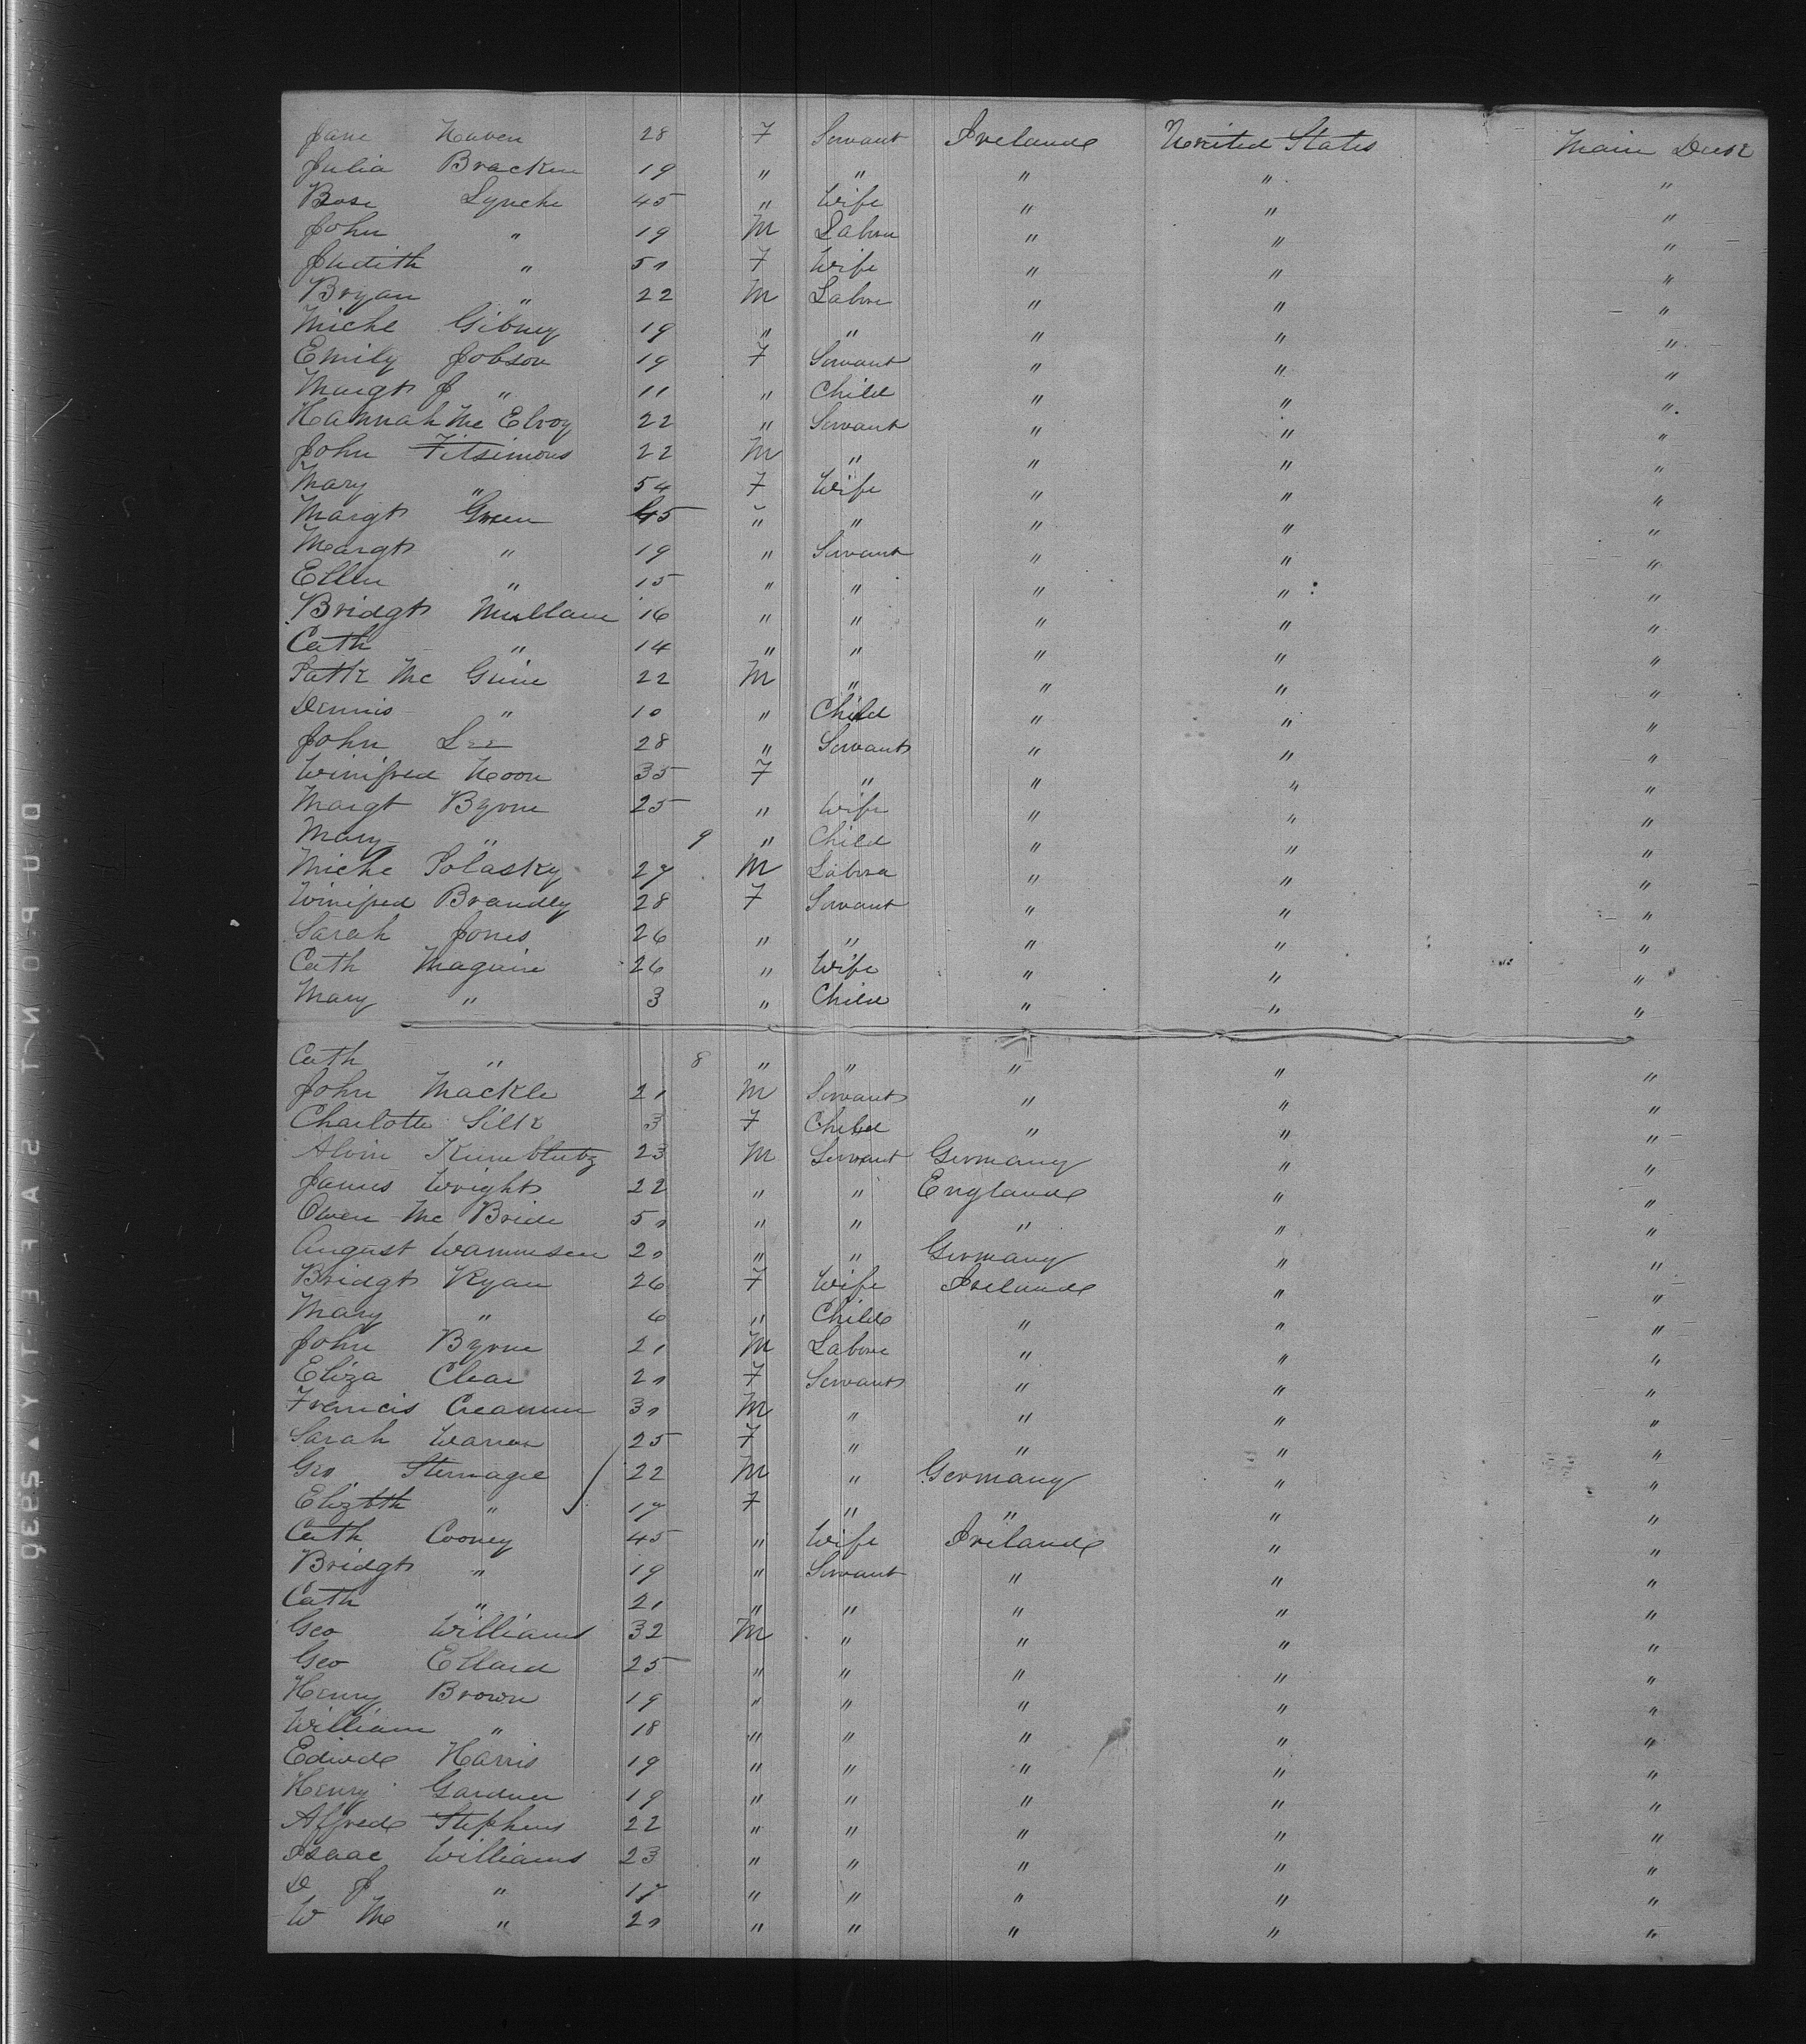 Jane Haven 28 F Servant Ireland United States Main Deck
Julia Bracken 19 " " " " "
Rose Lynch 45 " Wife " " "
John " 19 M Labrer " " "
Judith " 50 F Wife " " "
Bryan " 22 M Labrer " " "
Michl Gibney 19 " " " " "
Emily Jobson 19 F Servant " " "
Margt J " 11 " Child " " "
Hannah Mc Elroy 22 " Servant " " "
John Fitsimons 22 M " " " "
Mary " 54 F Wife " " "
Margt Green 45 " " " " "
Margt " 19 " Servant " " "
Ellen " 15 " " " " "
Bridgt Mullane 16 " " " " "
Cath " 14 " " " " "
Patk Mc Guire 22 M " " " "
Dennis " 10 " Child " " "
John Lee 28 " Servant " " "
Winifred Noon 35 F " " " "
Margt Byrne 25 " Wife " " "
Mary " 9 " Child " " "
Michl Polasky 27 M Labrer " " "
Winifred Brandly 28 F Servant " " "
Sarah Jones 26 " " " " "
Cath Maguire 26 " Wife " " "
Mary " 3 " Child " " "
Cath " 8 " " " " "
John Mackle 21 M Servant " " "
Charlotte Silk 3 F Child " " "
Alvin 23 M Servant Germany " "
James Wright 22 " " England " "
Owen Mc Bride 50 " " " " "
August Wammsen 20 " " Germany " "
Bridgt Ryan 26 F Wife Ireland " "
Mary " 6 " Child " " "
John Byrne 21 M Labrer " " "
Eliza Clear 20 F Servant " " "
Francis Creamer 30 M " " " "
Sarah Warren 25 F " " " "
Geo Sternagel 22 M " Germany " "
Elizbth " 17 F " " " "
Cath Cooney 45 " Wife Ireland " "
Bridgt " 19 " Servant " " "
Cath " 21 " " " " "
Geo Williams 32 M " " " "
Geo Ellard 25 " " " " "
Henry Brown 19 " " " " "
William " 18 " " " " "
Edwd Harris 19 " " " " "
Henry Gardner 19 " " " " "
Alfred Stephens 22 " " " " "
Isaac Williams 23 " " " " "
D J " 17 " " " " "
W M " 20 " " " " "